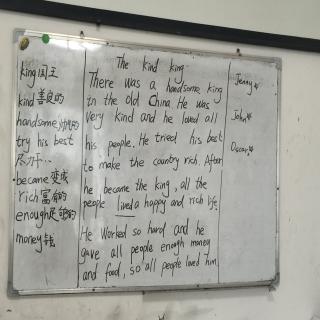 king国王
kind善良的
handsome帅气的
try his best
尽力...
became变成
rich富有的
enough足够的
money钱
The kind king
There was a handsome king
in the old China. He was
very kind and he loved all
his people. He tried his best
to make the country rich. After
he became the king, all the
people lived a happy and rich life.
He worked so hard and he
gave all people enough money
and food, so all people loved him.
Jenny
John
Oscar